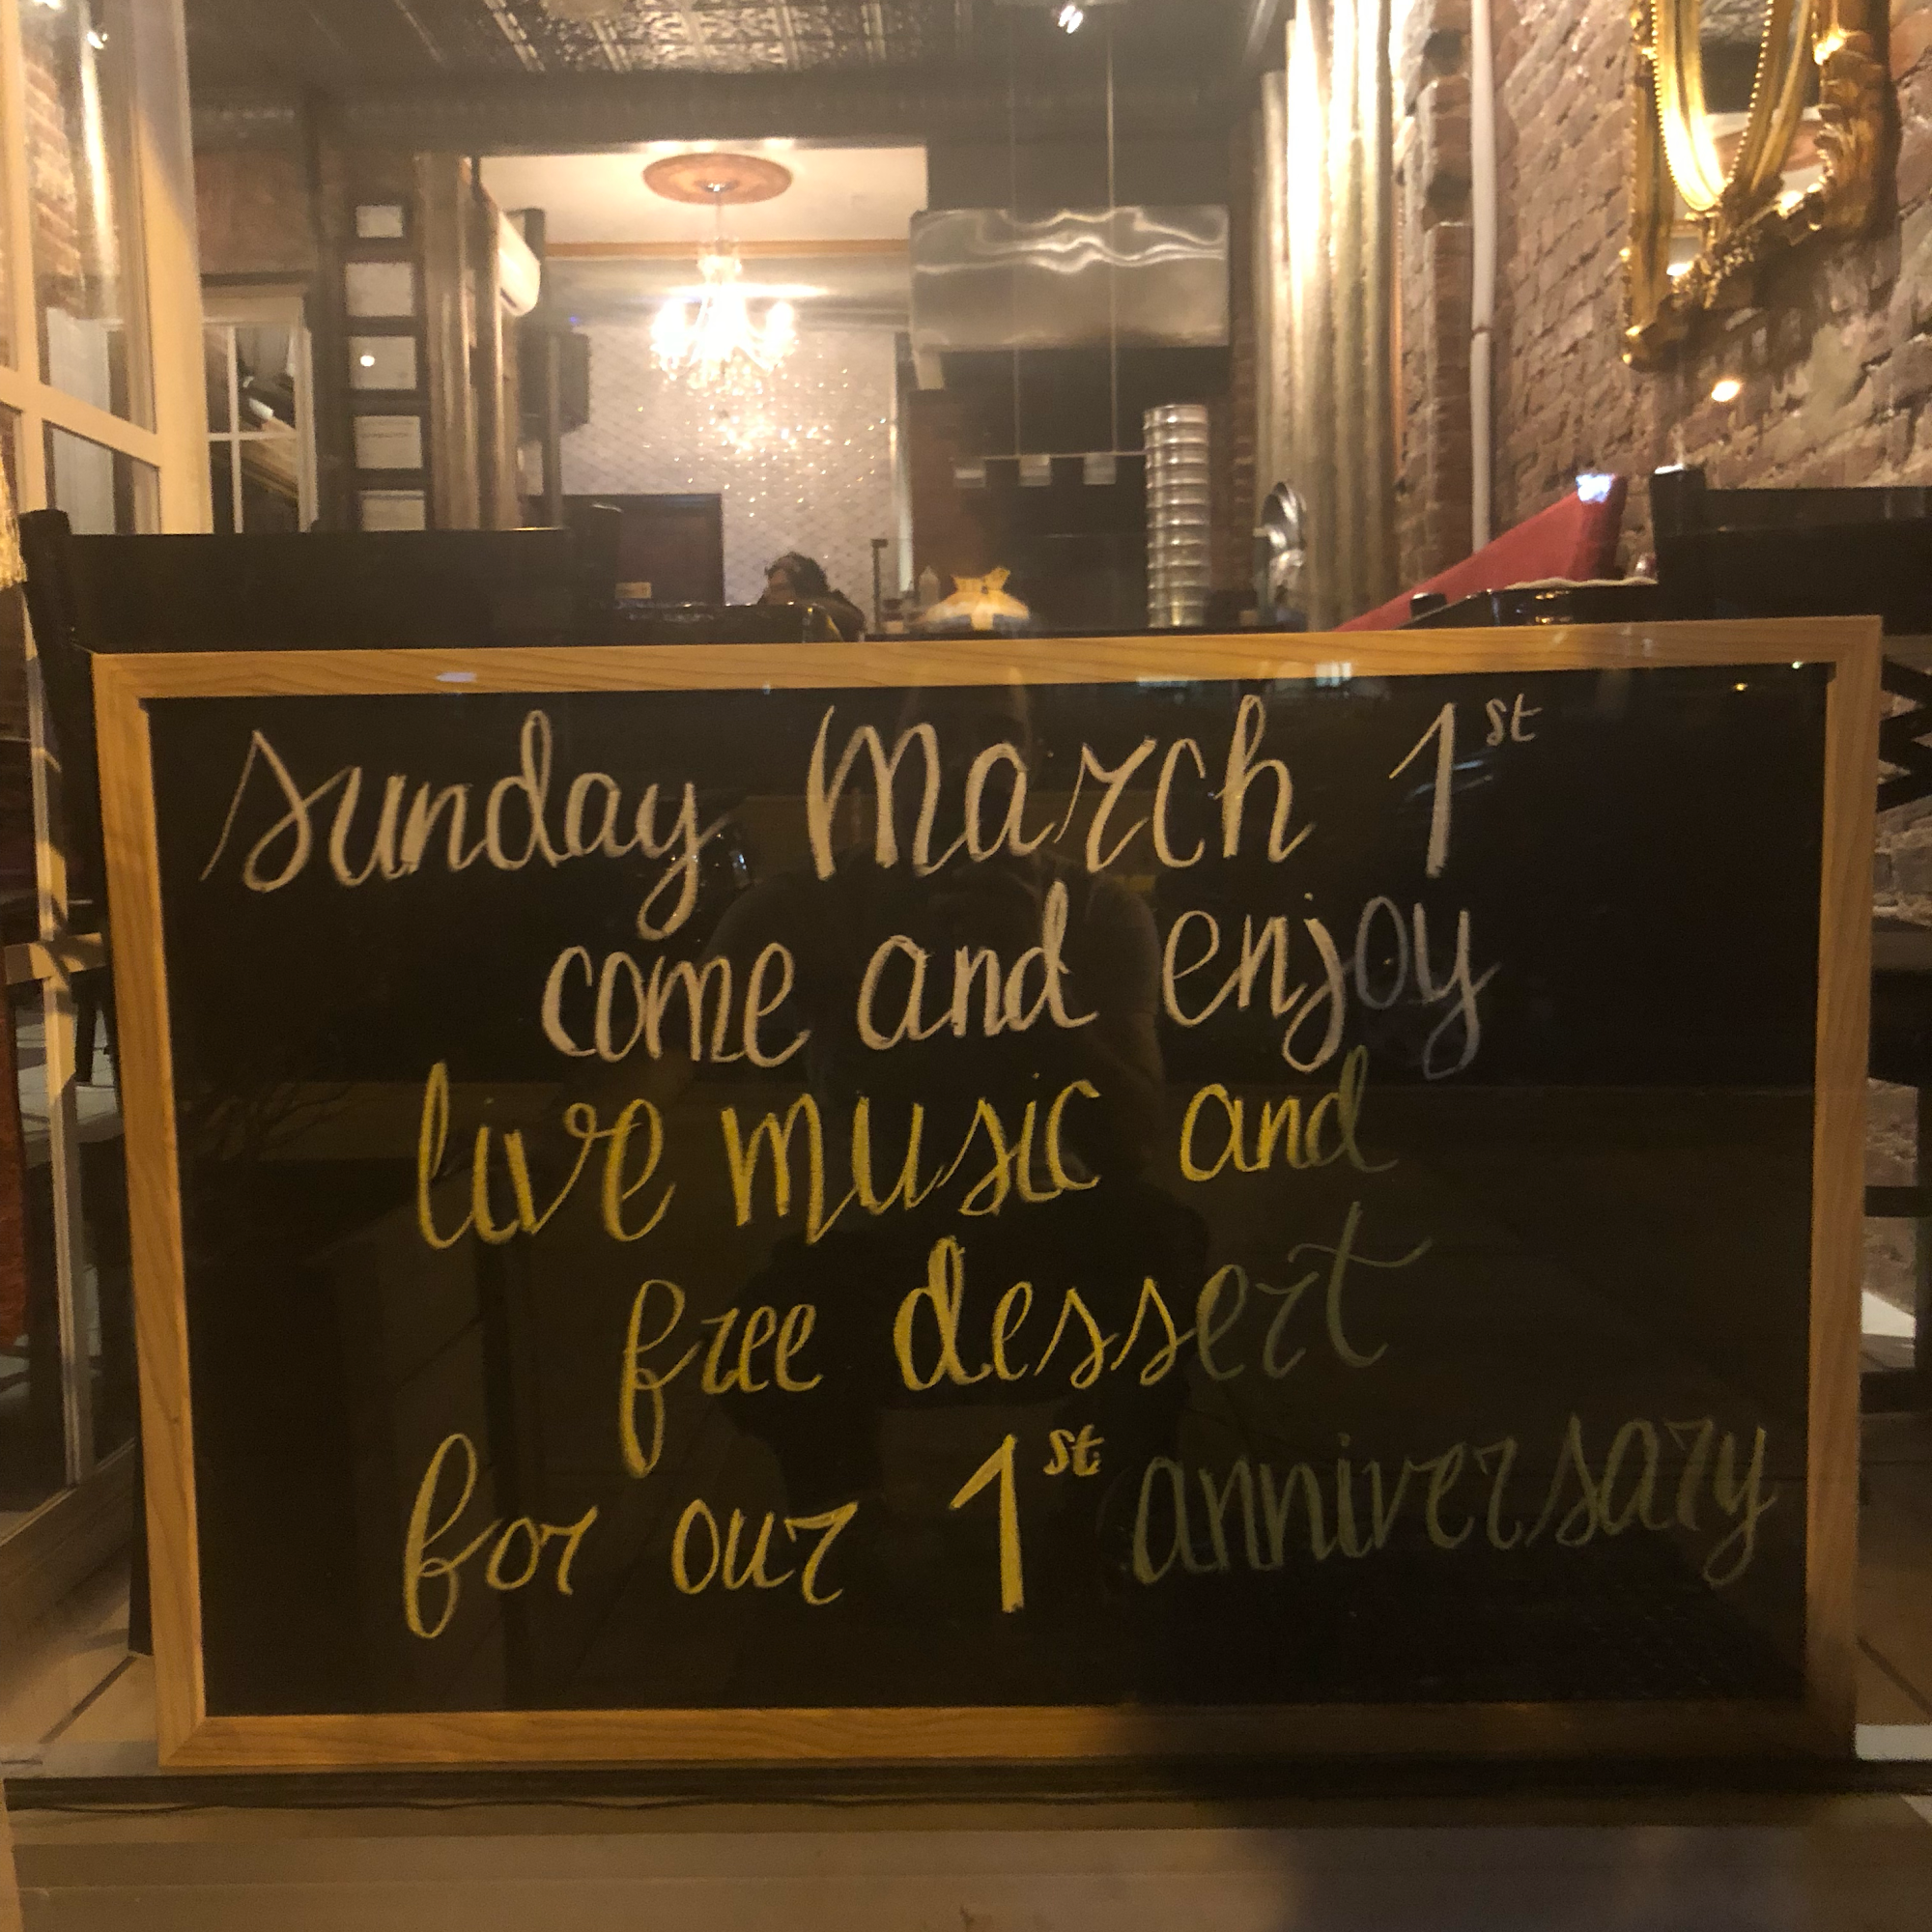 Sunday March 1st
come and enjoy
live music and
free dessert
for our 1st anniversary